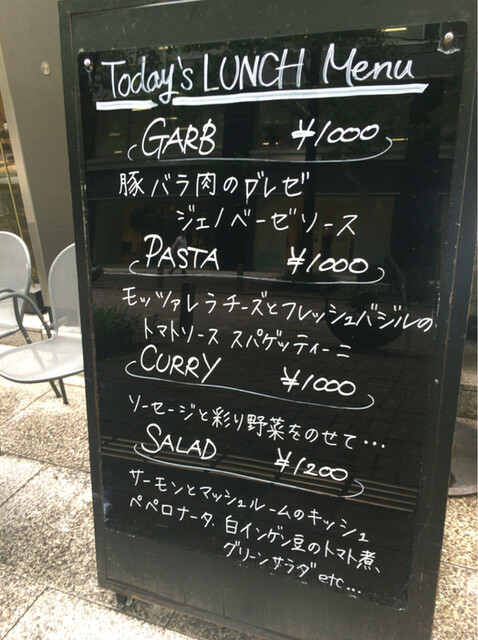 Today's LUNCH Menu
GARB ¥1000
豚バラ肉のブレゼ
ジェノベーゼソース
PASTA ¥1000
モッツァレラチーズとフレッシュバジルの
トマトソース スパゲッティーニ
CURRY ¥1000
ソーセージと彩り野菜をのせて…
SALAD ¥1200
サーモンとマッシュルームのキッシュ
ペペロナータ、白インゲン豆のトマト煮、
グリーンサラダ etc...